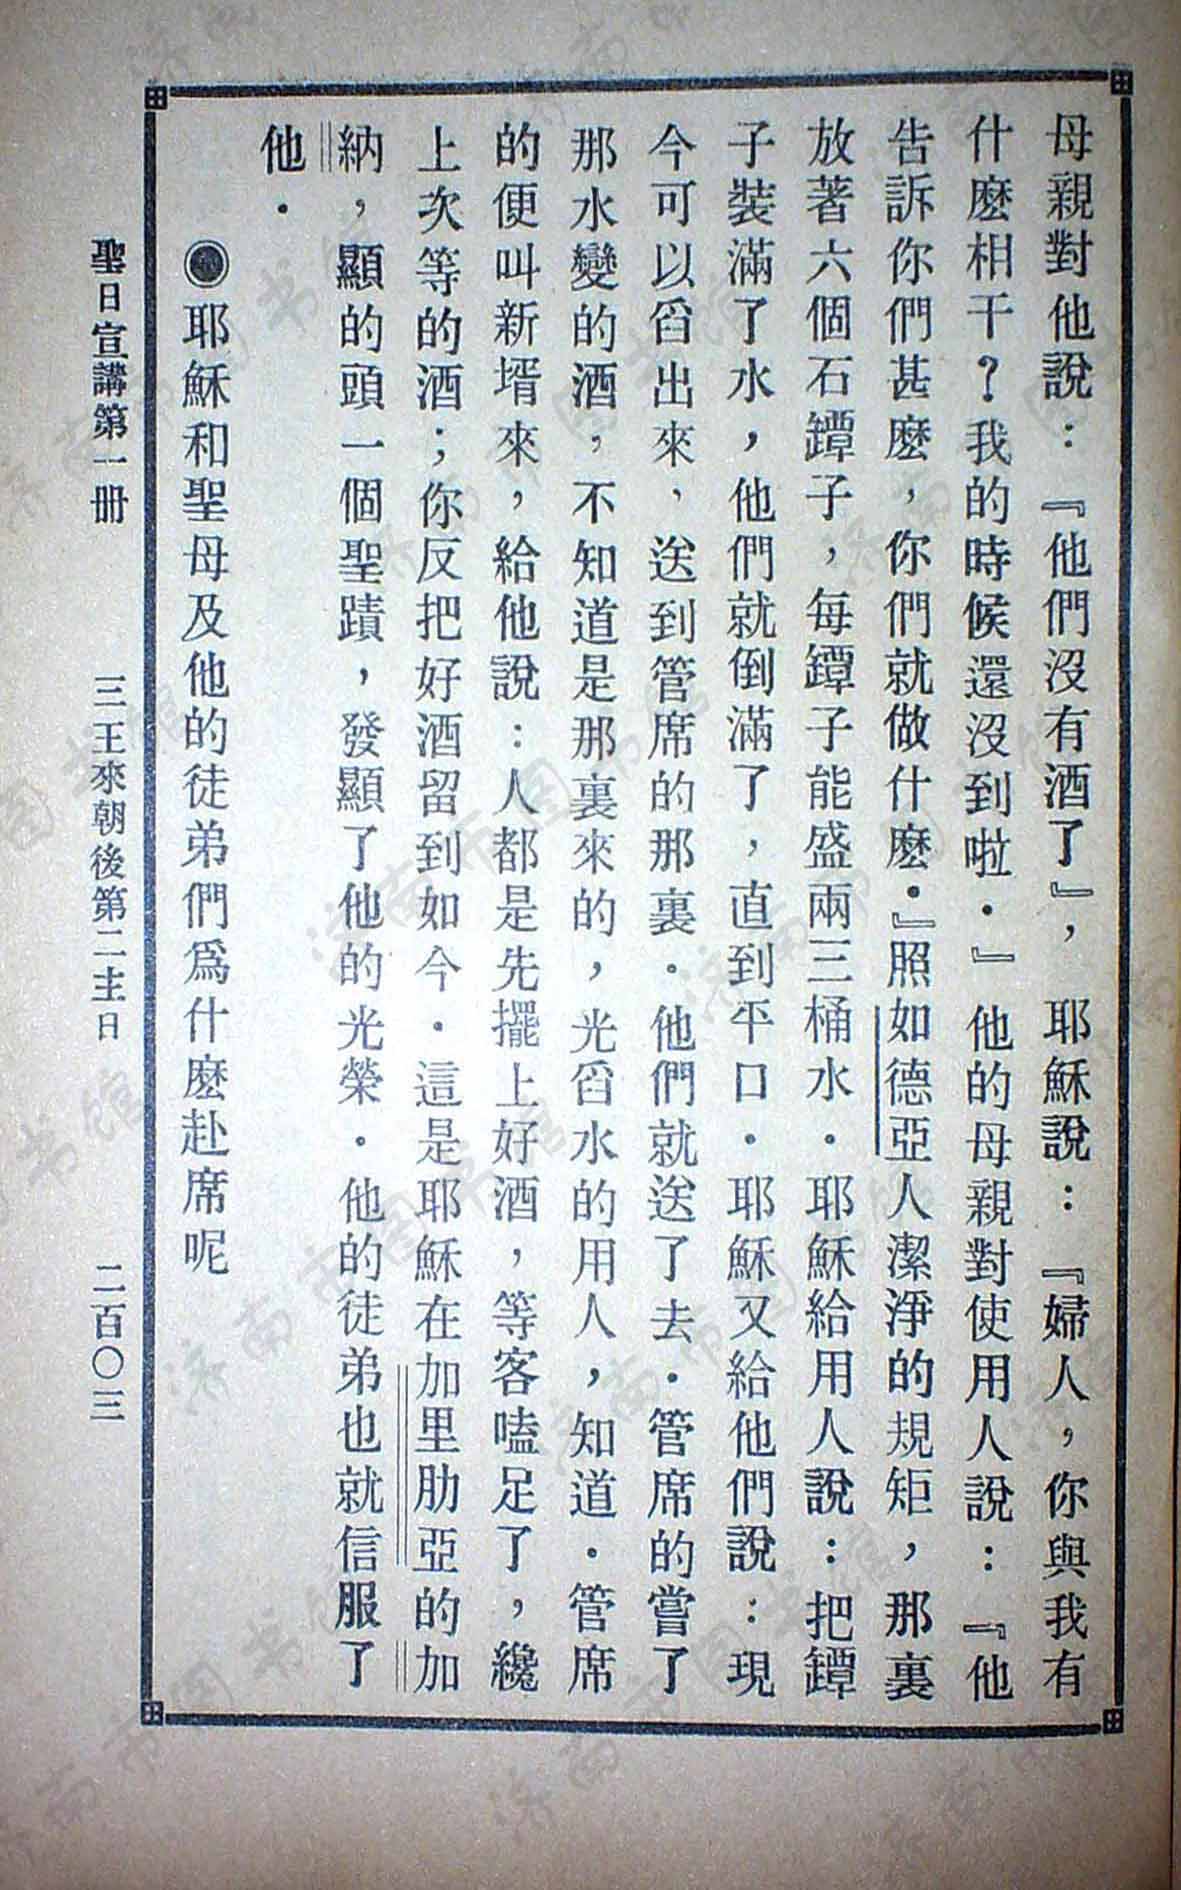 母親對他說：『他們沒有酒了』，耶穌說：『婦人，你與我有
什麼相干？我的時候還沒到啦．』他的母親對使用人說：『他
告訴你們甚麼，你們就做什麼．』照如德亞人潔淨的規矩，那裏
放著六個石罈子，每罈子能盛兩三桶水．耶穌給用人說：把罈
子裝滿了水，他們就倒滿了，直到平口．耶穌又給他們說：現
今可以舀出來，送到管席的那裏．他們就送了去．管席的嘗了
那水變的酒，不知道是那裏來的，光舀水的用人，知道．管席
的便叫新壻來，給他說：人都是先擺上好酒，等客嗑足了，纔
上次等的酒；你反把好酒留到如今．這是耶穌在加里肋亞的加
納，顯的頭一個聖蹟，發顯了他的光榮．他的徒弟也就信服了
他．
◉耶穌和聖母及他的徒弟們爲什麼赴席呢
聖日宣講第一册　三王來朝後第二主日　二百〇三
济南市图书馆